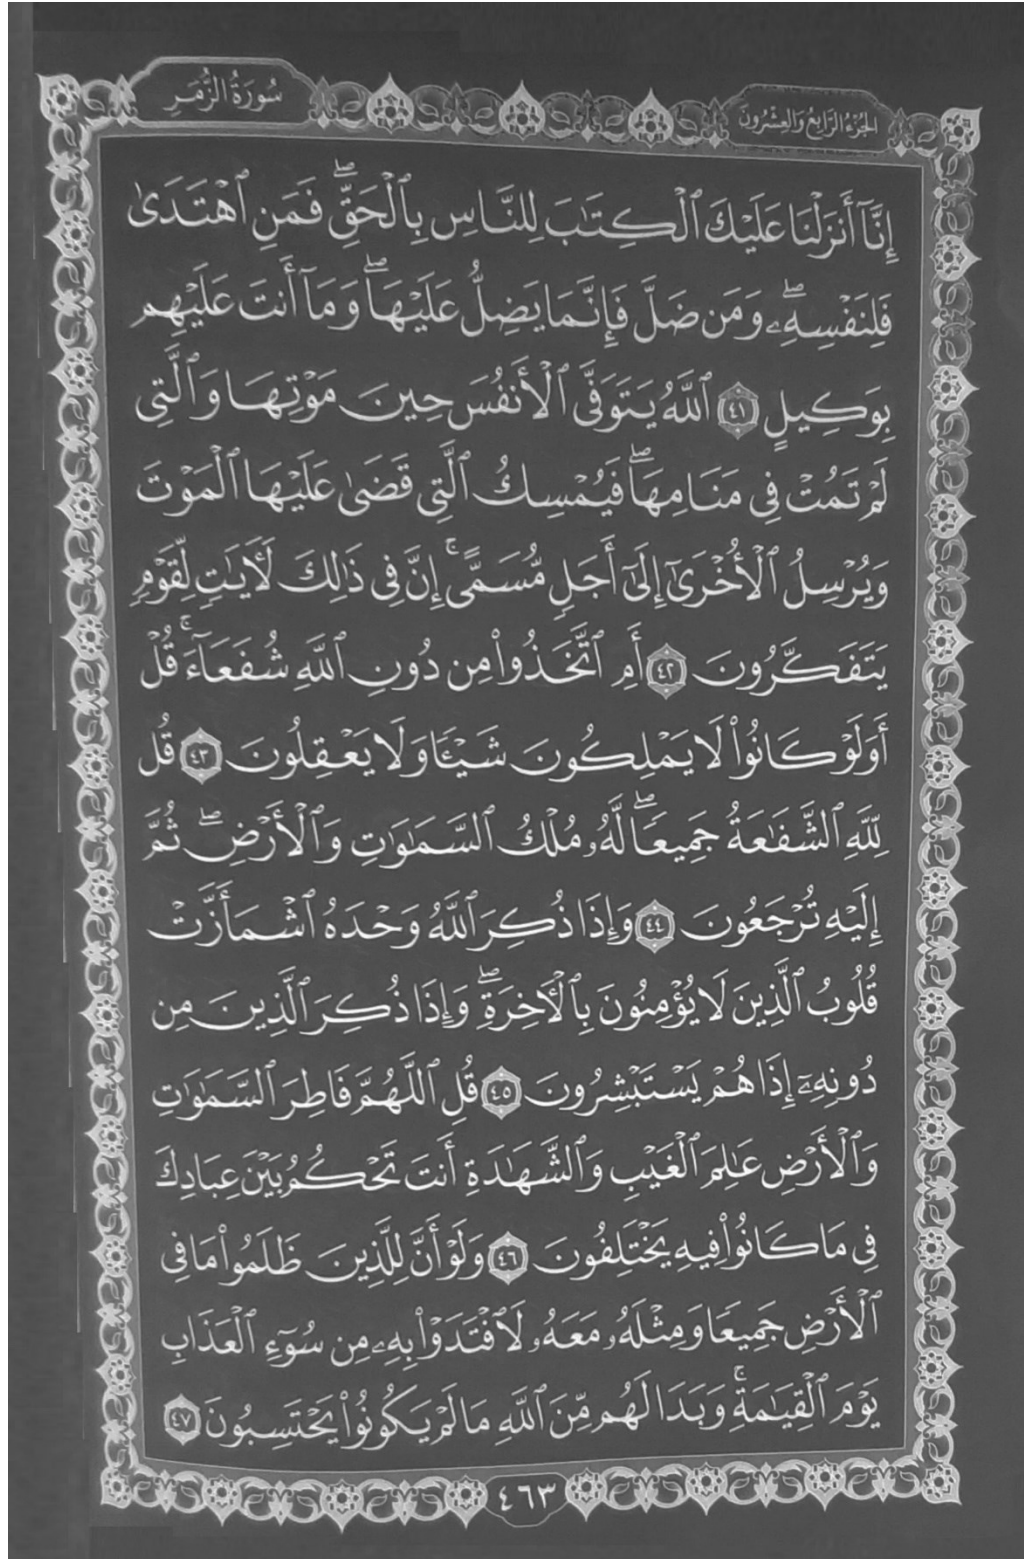 الجُزْءُ الرَّابِعُ وَالعِشْرُونَ
سُورَةُ الزُّمَرِ
إِنَّآ أَنزَلْنَا عَلَيْكَ ٱلْكِتَٰبَ لِلنَّاسِ بِٱلْحَقِّۖ فَمَنِ ٱهْتَدَىٰ
فَلِنَفْسِهِۦۖ وَمَن ضَلَّ فَإِنَّمَا يَضِلُّ عَلَيْهَاۖ وَمَآ أَنتَ عَلَيْهِم
بِوَكِيلٍ ٤١ ٱللَّهُ يَتَوَفَّى ٱلْأَنفُسَ حِينَ مَوْتِهَا وَٱلَّتِى
لَمْ تَمُتْ فِى مَنَامِهَاۖ فَيُمْسِكُ ٱلَّتِى قَضَىٰ عَلَيْهَا ٱلْمَوْتَ
وَيُرْسِلُ ٱلْأُخْرَىٰٓ إِلَىٰٓ أَجَلٍ مُّسَمًّىۚ إِنَّ فِى ذَٰلِكَ لَءَايَٰتٍ لِّقَوْمٍ
يَتَفَكَّرُونَ ٤٢ أَمِ ٱتَّخَذُوا۟ مِن دُونِ ٱللَّهِ شُفَعَآءَۚ قُلْ
أَوَلَوْ كَانُوا۟ لَا يَمْلِكُونَ شَيْـًٔا وَلَا يَعْقِلُونَ ٤٣ قُل
لِّلَّهِ ٱلشَّفَٰعَةُ جَمِيعًاۖ لَّهُۥ مُلْكُ ٱلسَّمَٰوَٰتِ وَٱلْأَرْضِۖ ثُمَّ
إِلَيْهِ تُرْجَعُونَ ٤٤ وَإِذَا ذُكِرَ ٱللَّهُ وَحْدَهُ ٱشْمَأَزَّتْ
قُلُوبُ ٱلَّذِينَ لَا يُؤْمِنُونَ بِٱلْءَاخِرَةِۖ وَإِذَا ذُكِرَ ٱلَّذِينَ مِن
دُونِهِۦٓ إِذَا هُمْ يَسْتَبْشِرُونَ ٤٥ قُلِ ٱللَّهُمَّ فَاطِرَ ٱلسَّمَٰوَٰتِ
وَٱلْأَرْضِ عَٰلِمَ ٱلْغَيْبِ وَٱلشَّهَٰدَةِ أَنتَ تَحْكُمُ بَيْنَ عِبَادِكَ
فِى مَا كَانُوا۟ فِيهِ يَخْتَلِفُونَ ٤٦ وَلَوْ أَنَّ لِلَّذِينَ ظَلَمُوا۟ مَا فِى
ٱلْأَرْضِ جَمِيعًا وَمِثْلَهُۥ مَعَهُۥ لَٱفْتَدَوْا۟ بِهِۦ مِن سُوٓءِ ٱلْعَذَابِ
يَوْمَ ٱلْقِيَٰمَةِۚ وَبَدَا لَهُم مِّنَ ٱللَّهِ مَا لَمْ يَكُونُوا۟ يَحْتَسِبُونَ ٤٧
٤٦٣